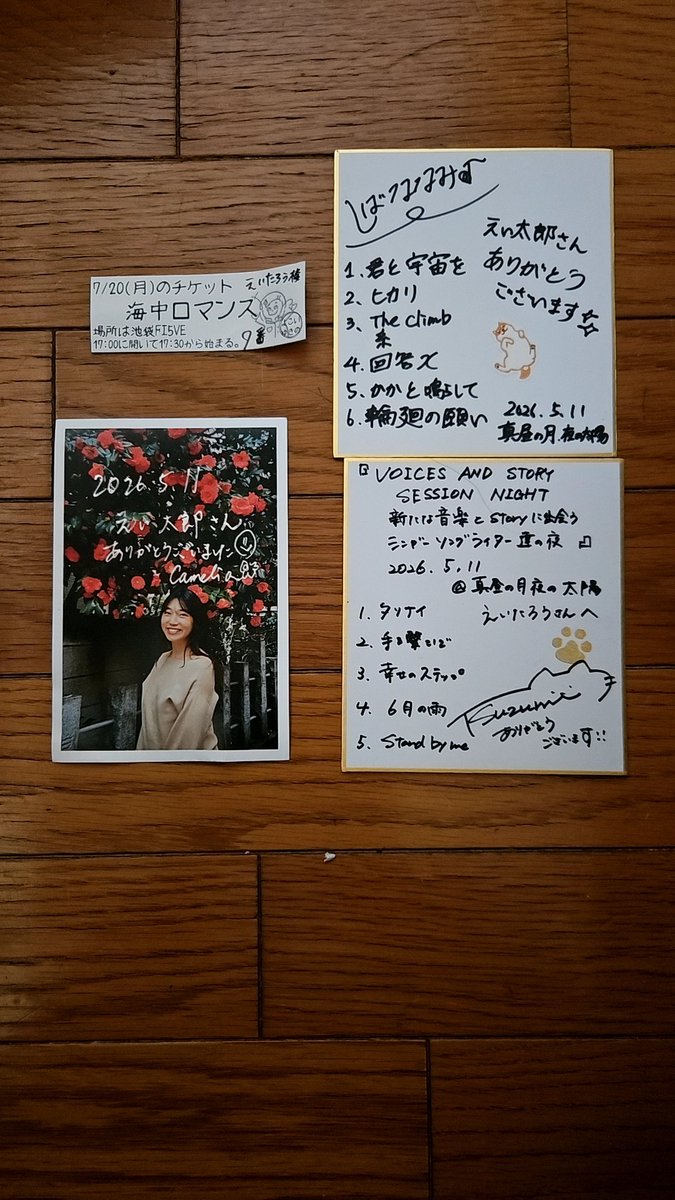 7/20(月)のチケット えいたろう様
海中ロマンス
場所は池袋FI5VE
17:00に開いて17:30から始まる。9番
2026.5.11
えい太郎さん
ありがとうございました
Camelia
えい太郎さん
ありがとう
ございます☆
1. 君と宇宙を
2. ヒカリ
3. The Climb
4. 回答X
5. かかと鳴らして
6. 輪廻の願い
2026.5.11
真昼の月 夜の太陽
『VOICES AND STORY
SESSION NIGHT
新たな音楽とStoryに出会う
シンガーソングライター達の夜』
2026.5.11
@真昼の月夜の太陽
えいたろうさんへ
1. タソナイ
2. 手を繋いで
3. 幸せのステップ
4. 6月の雨
5. Stand by me
Suzumi
ありがとう
ございます!!